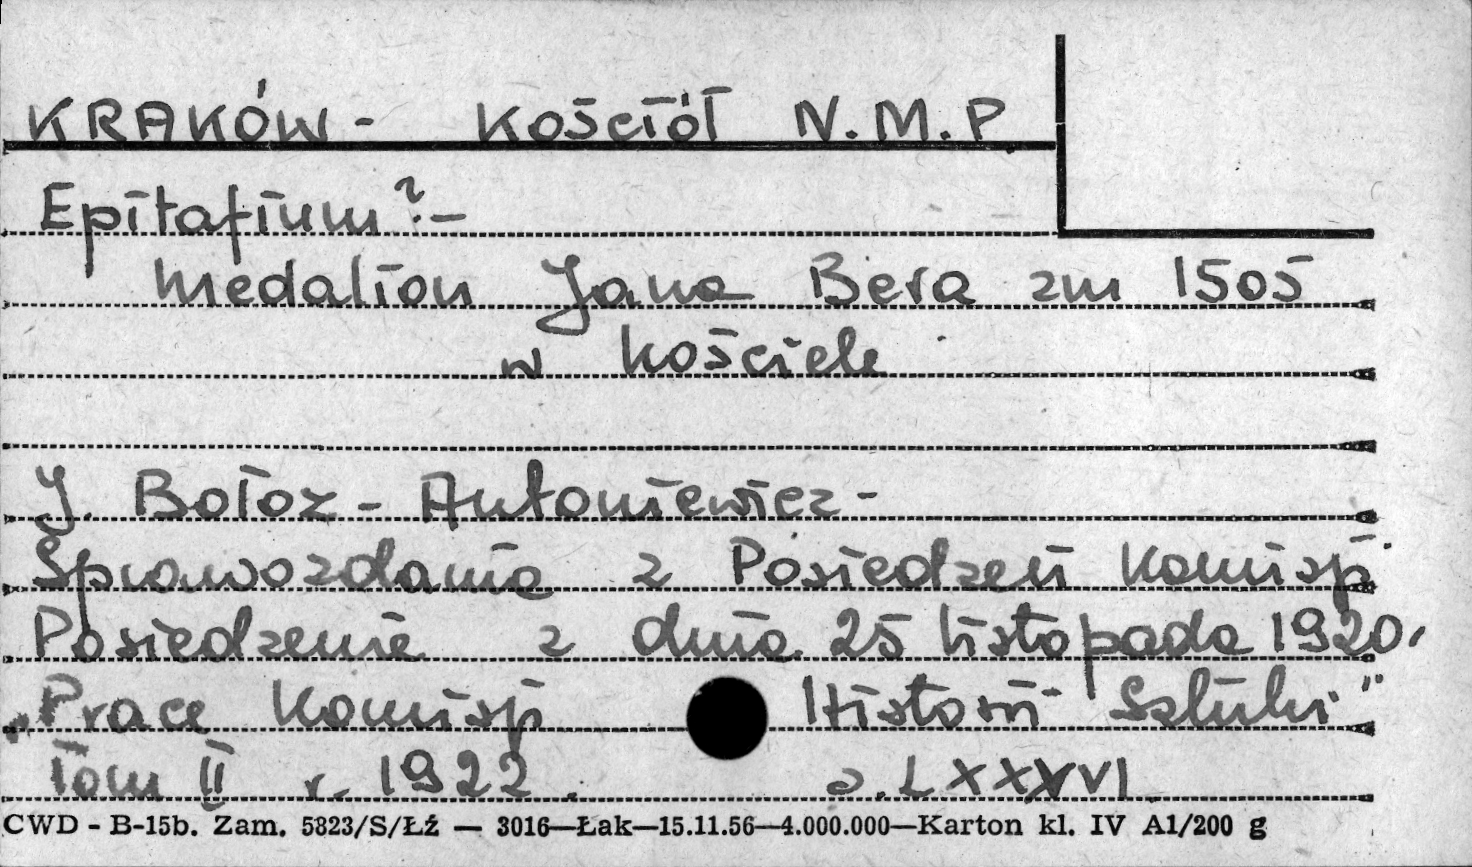 KRAKÓW - Kościół N.M.P.
Epitafium? -
Medalion Jana Bera zm 1505
w kościele
J. Bołoz - Antoniewicz -
Sprawozdania z Posiedzeń Komisji
Posiedzenie z dnia 25 listopada 1920.
„Prace Komisji Historii Sztuki"
Tom II r. 1922. s. LXXXVI
CWD - B-15b. Zam. 5823/S/Łź — 3016—Łak—15.11.56—4.000.000—Karton kl. IV A1/200 g